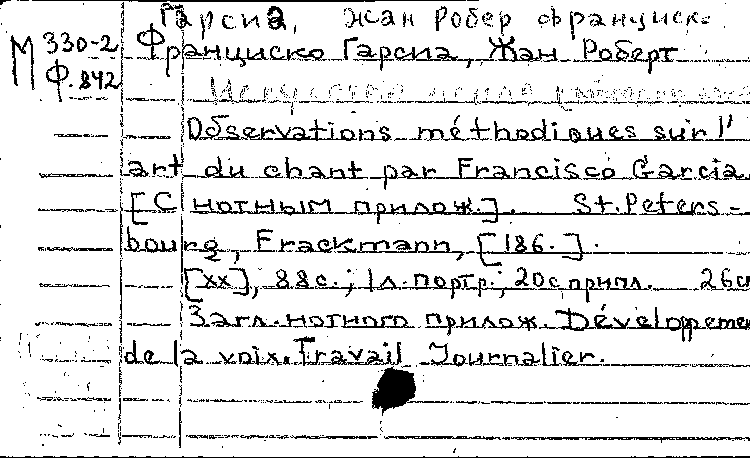 Гарсиа, Жан Робер Франциск
М 330-2 Франциско Гарсиа, Жан Роберт
Ф. 842
Искусство пения
Observations méthodiques sur l'
art du chant par Francisco Garcia
[С нотным прилож.]. St. Peters-
bourg, Frackmann, [186.].
[XX], 88 с.; 1 л. портр.; 20 с прил. 26 с
Загл. нотного прилож. Développeme
de la voix. Travail Journalier.